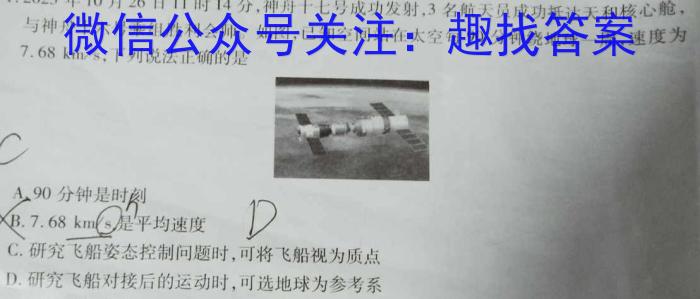 2023年10月26日11时14分,神舟十七号成功发射,3名航天员成功抵达天和核心舱,
微信公众号关注:趣找答案
与神
速度为
7.68 km/s,下列说法正确的是
C
A.90分钟是时刻
B.7.68 km/s是平均速度
D
C.研究飞船姿态控制问题时,可将飞船视为质点
D.研究飞船对接后的运动时,可选地球为参考系